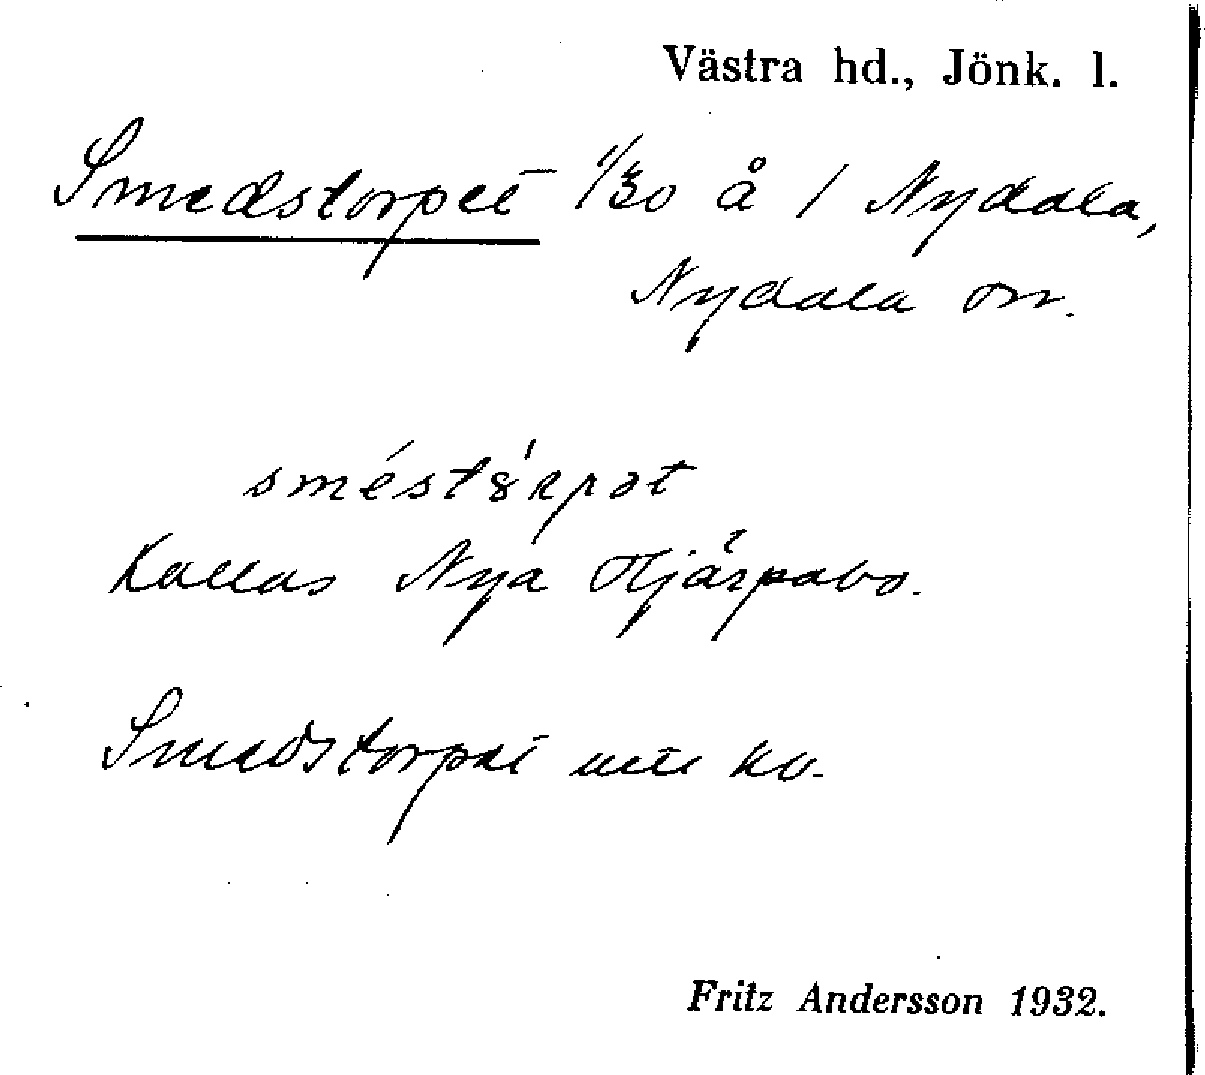 Västra hd., Jönk. l.
Smedstorpet 1/30 å 1 Nydala,
Nydala sn.
sméstórpət
Kallas Nya Hjärpabo.
Smedstorpet ute kv.
Fritz Andersson 1932.